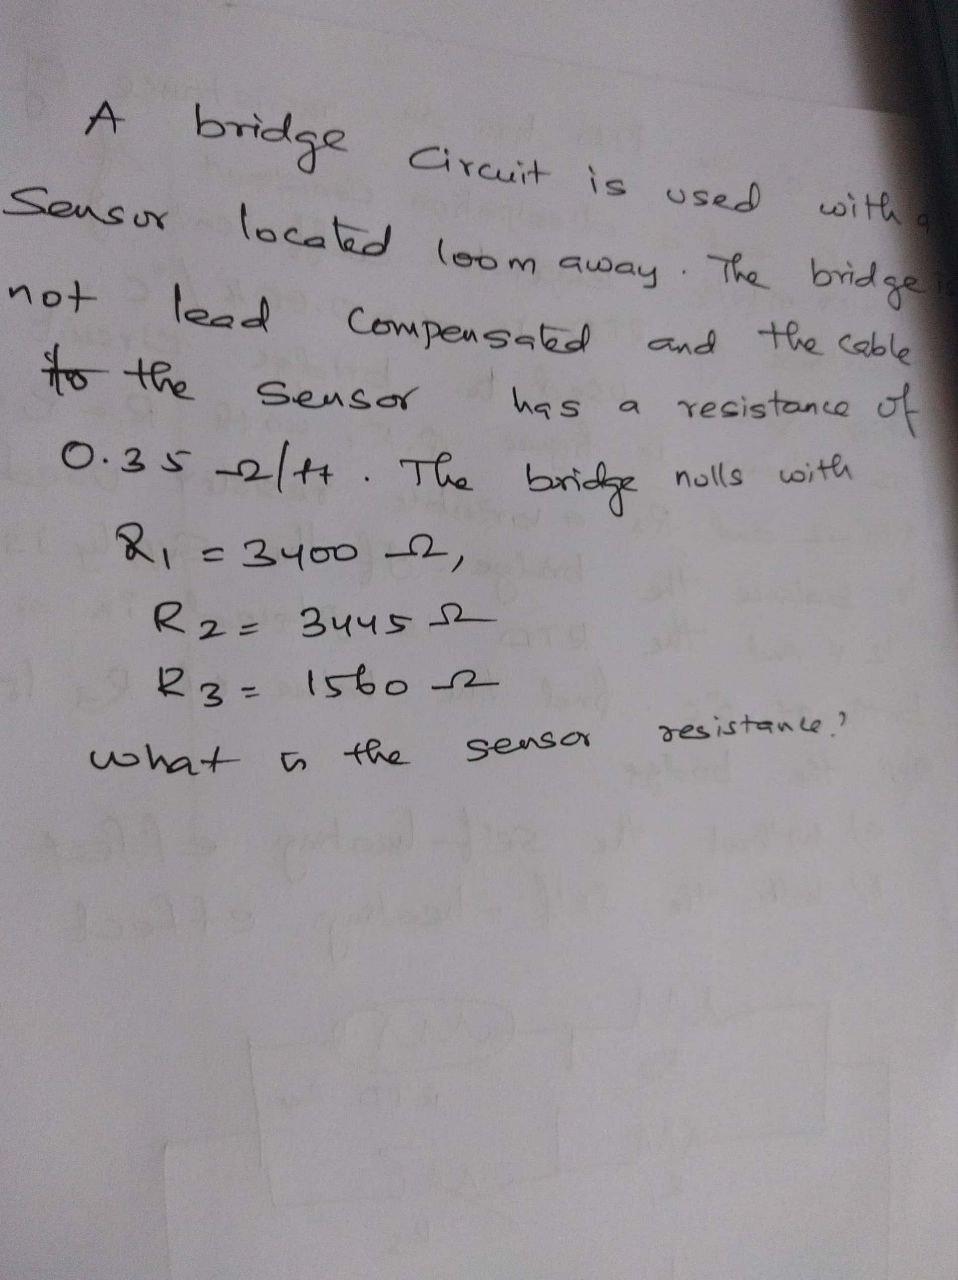 A bridge circuit is used with a
Sensor located 100m away. The bridge is
not lead compensated and the cable
to the sensor has a resistance of
0.35 Ω/ft. The bridge nulls with
R1 = 3400 Ω,
R2 = 3445 Ω
R3 = 1560 Ω
what is the sensor resistance?